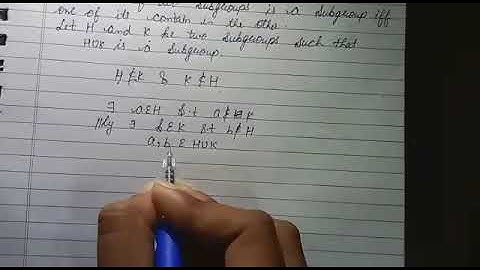 of two subgroups is a subgroup iff
one of its contain in the other
Let H and K be two subgroups such that
HUK is a subgroup.
H ⊄ K & K ⊄ H
∃ a ∈ H s.t a ∉ K
||ly ∃ b ∈ K s.t b ∉ H
a, b ∈ HUK